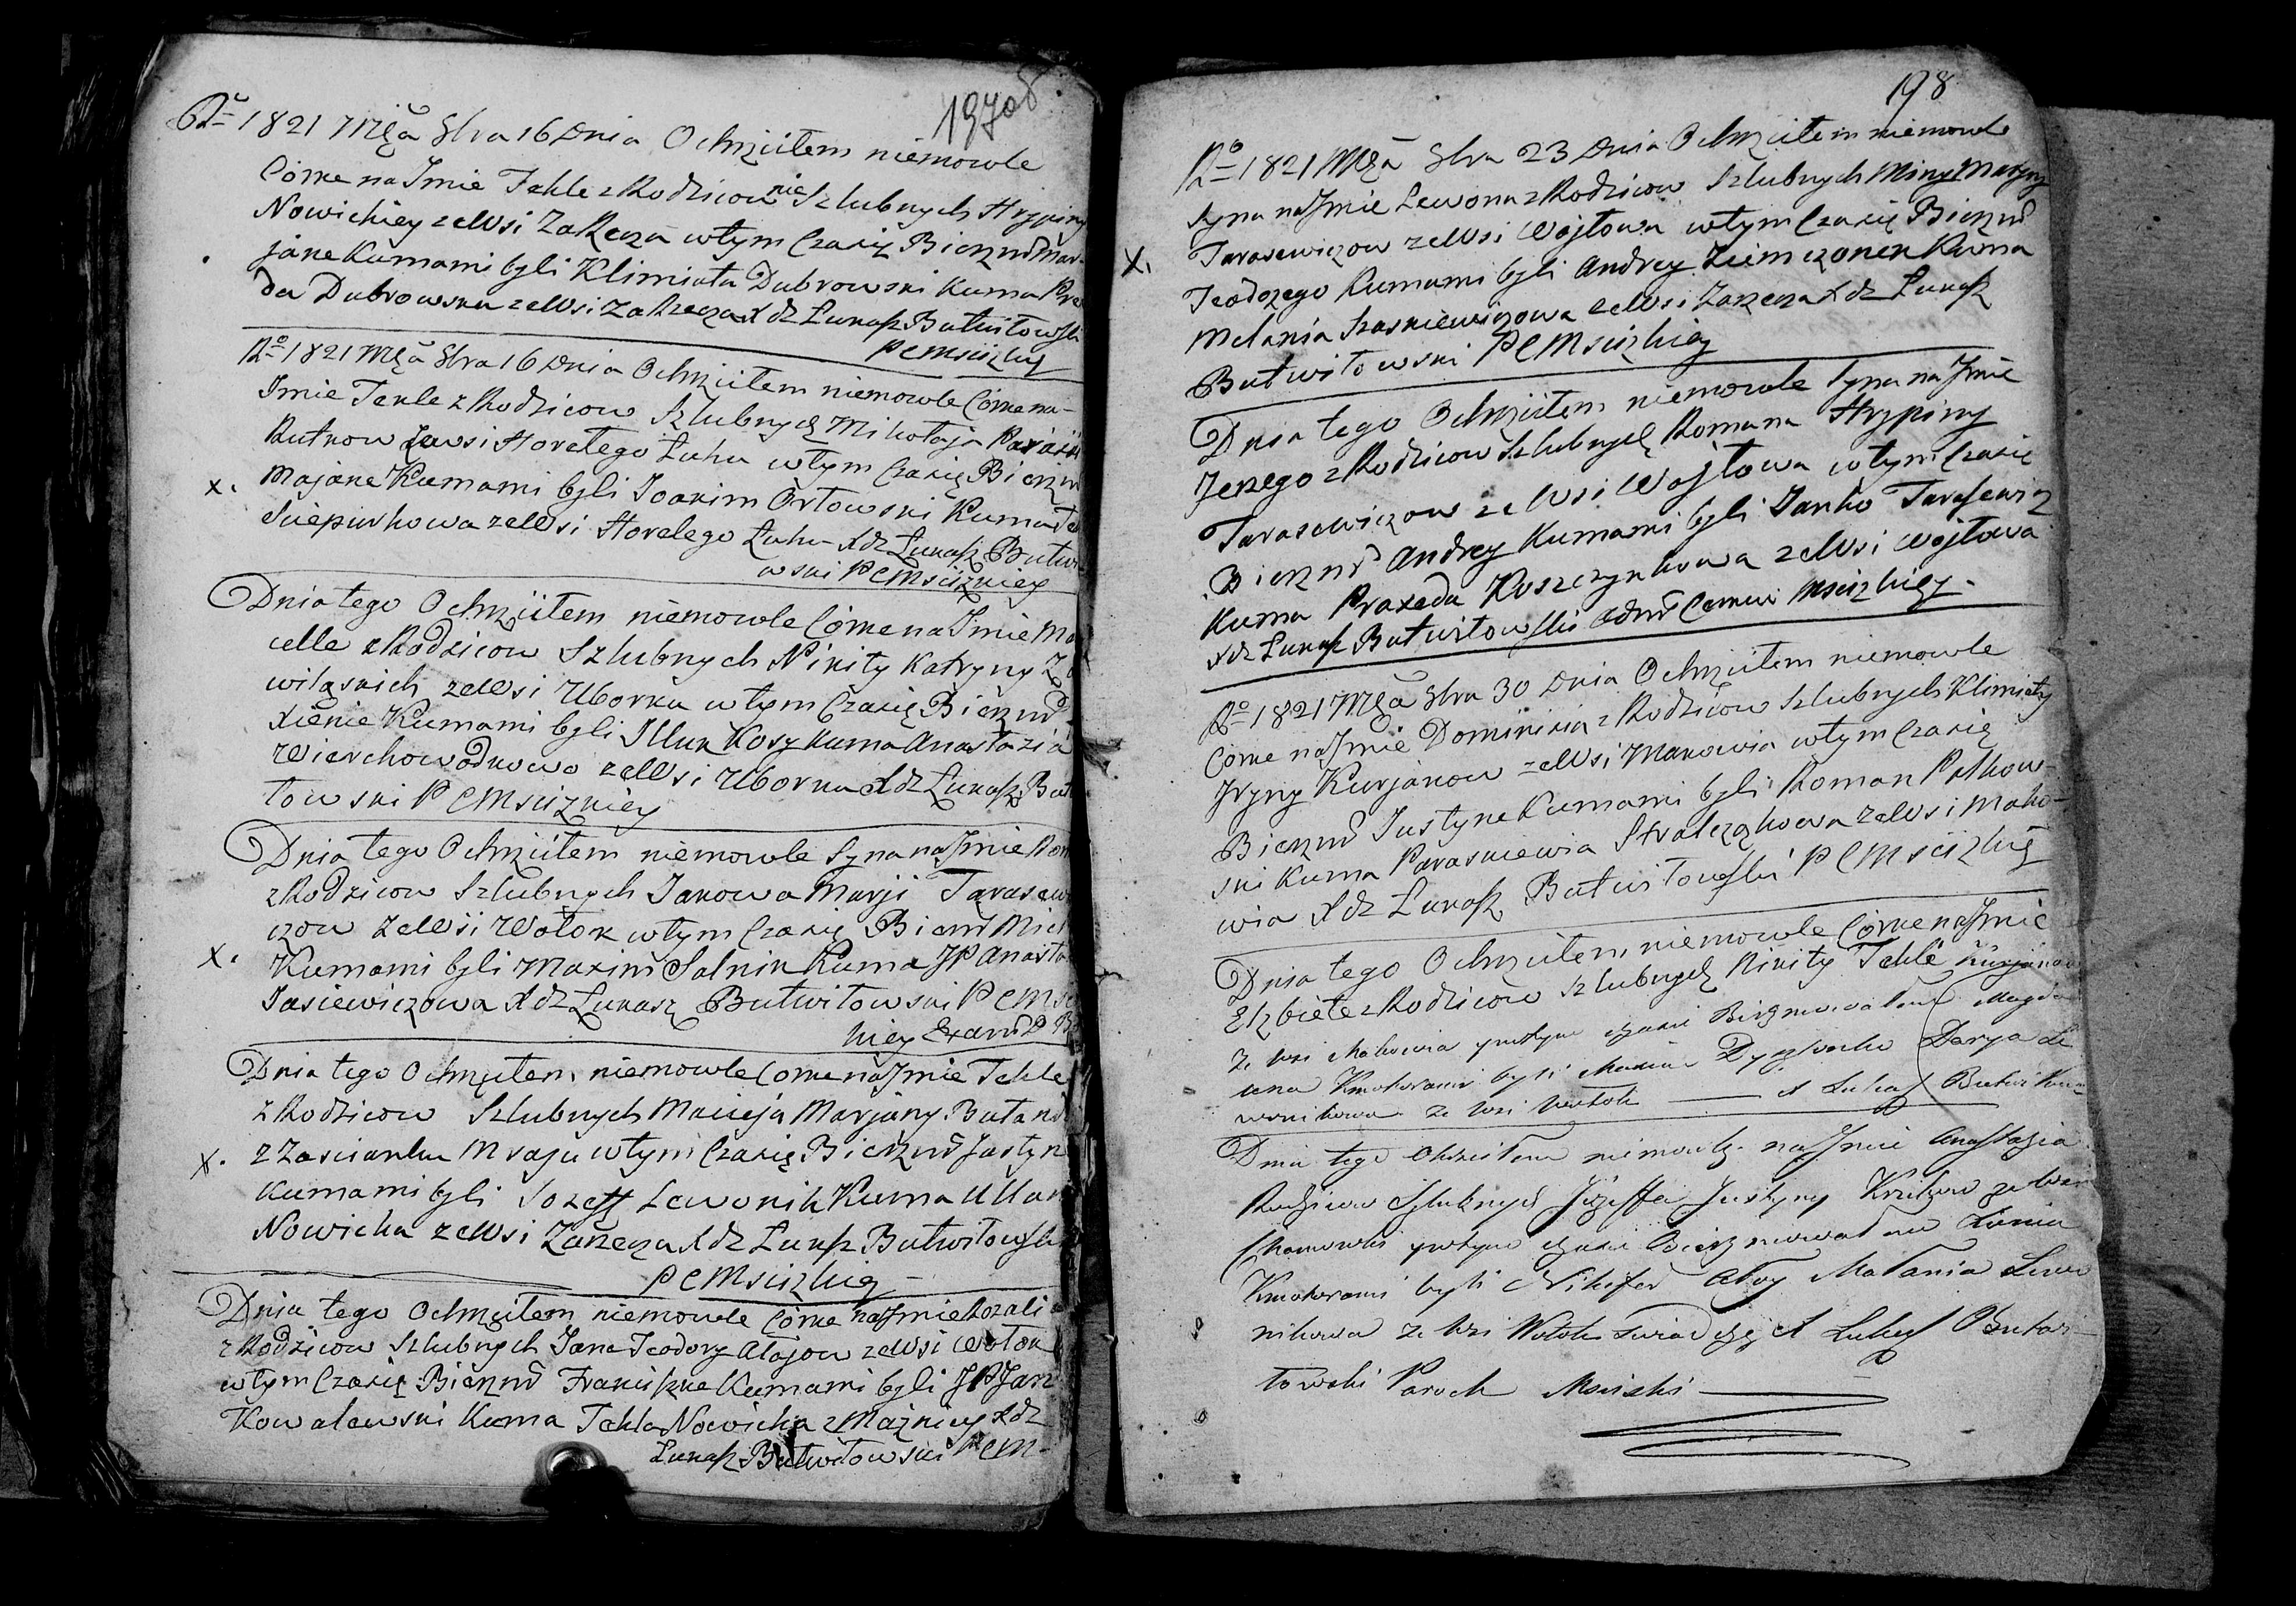 197об
Rº 1821 Mca 8bra 16 Dnia Ochrzciłem niemowle
Córke na Imie Tekle z Rodzicow nie Szlubnych Hrypiny
Nowickiey ze Wsi Zarzecza wtym Czasię Bierzmow Mar-
jane Kumami byli Klimiata Dubrowski Kuma Pra
da Dubrowska ze Wsi Zarzecza X dz Łukasz Butwiłowski
P C Mscizkiey
Rº 1821 Mca 8bra 16 Dnia Ochrzciłem niemowle Córke na-
Imie Tekle z Rodzicow Szlubnych Mikołaja Paraski
Rutkow ze wsi Horełego Łuhu wtym Czasię Bierzm
Marjane Kumami byli Joakim Orłowski Kuma Te
Sciepurkowa ze Wsi Horelego Łuhu X dz Łukasz Butwi
wski P C Mscizkiey
Dnia tego Ochrzciłem niemowle Córke na Imie Ma
celle z Rodzicow Szlubnych Nikity Katryny Z
wiląskich ze Wsi Uborka wtym Czasię Bierzmow
Xienie Kumami byli Illuk Kosz Kuma Anastazia
Wierchowodkowa ze Wsi Uborka X dz Łukasz But
towski P C Mscizkiey
Dnia tego Ochrzciłem niemowle Syna na Imie Rom
z Rodzicow Szlubnych Jakowa Marji Tarasewi
czow ze Wsi Wołok wtym Czasię Bierm Mich
Kumami byli Maxim Salnik Kuma JP Anasta
Jasiewiczowa X dz Łukasz Butwiłowski P C Msc
kiey
Dnia tego Ochrzciłem niemowle Corke na Imie Tekle
z Rodzicow Szlubnych Macieja Marjany Buta
z Zascianku Msaju wtym Czasię Bierzmow Justyn
Kumami byli Jozeff Lewonik Kuma Ullan
Nowicka ze Wsi Zarzecza X dz Łukasz Butwiłowski
P C Mscizkiey
Dnia tego Ochrzciłem niemowle Córke na Imie Rozali
z Rodzicow Szlubnych Jana Teodory Ałajow ze Wsi Wołok
wtym Czasię Bierzmow Franciszke Kumami byli JP Jan
Kowalewski Kuma Tekla Nowicka z Mażnicy X dz
Łukasz Butwiłowski P C M
198
Rº 1821 Mca 8bra 23 Dnia Ochrzciłem niemowle
Syna na Imie Lewona z Rodzicow Szlubnych Miny Maryny
Tarasewiczow ze Wsi Wojtowa wtym Czasię Bierzmow
Teodozego Kumami byli Andrey Ziemczonek Kuma
Melania Szaskiewiczowa ze Wsi Zarzecza X dz Łukasz
Butwiłowski P C Mscizkiey
Dnia tego Ochrzciłem niemowle Syna na Imie
Jerzego z Rodzicow Szlubnych Romana Hrypiny
Tarasewiczow ze Wsi Wojtowa wtym Czasię
Bierzmow Andrey Kumami byli Janko Tarasewicz
Kuma Praxeda Koszczynkowa ze Wsi Wojtowa
X dz Łukasz Butwiłowski Adm Cerkwi Mscizkiey
Rº 1821 Mca 8bra 30 Dnia Ochrzciłem niemowle
Corke na Imie Dominikią z Rodzicow Szlubnych Klimiaty
Jryny Kurjanow ze Wsi Makowia wtym Czasię
Bierzmow Justyne Kumami byli Roman Pstkow-
ski Kuma Paraskiewia Stralczękowa ze Wsi Mako-
wia X dz Łukasz Butwiłowski P C Mscizkiey
Dnia tego Ochrzciłem niemowle Córke na Imie
Elzbiete z Rodzicow Szlubnych Nikity Tekle Kurjanow
Z wsi Makowia y wtym czasie Bierzmowałem Magda
lena Kmotrami byli Darya Le
wonikowa ze wsi Wołok X Łukasz Butwiłow
Dnia tego Ochrzciłem niemowle na Imie Anastazia
Rodzicow Szlubnych Jozeffa Justyny ze wsi
y wtym czasie Bierzmowałem
Kmotrami byli Nikifor Ałay Małania Lewo
nikowa ze wsi Wołok X Łukasz Butwi
towski Paroch Mscizki